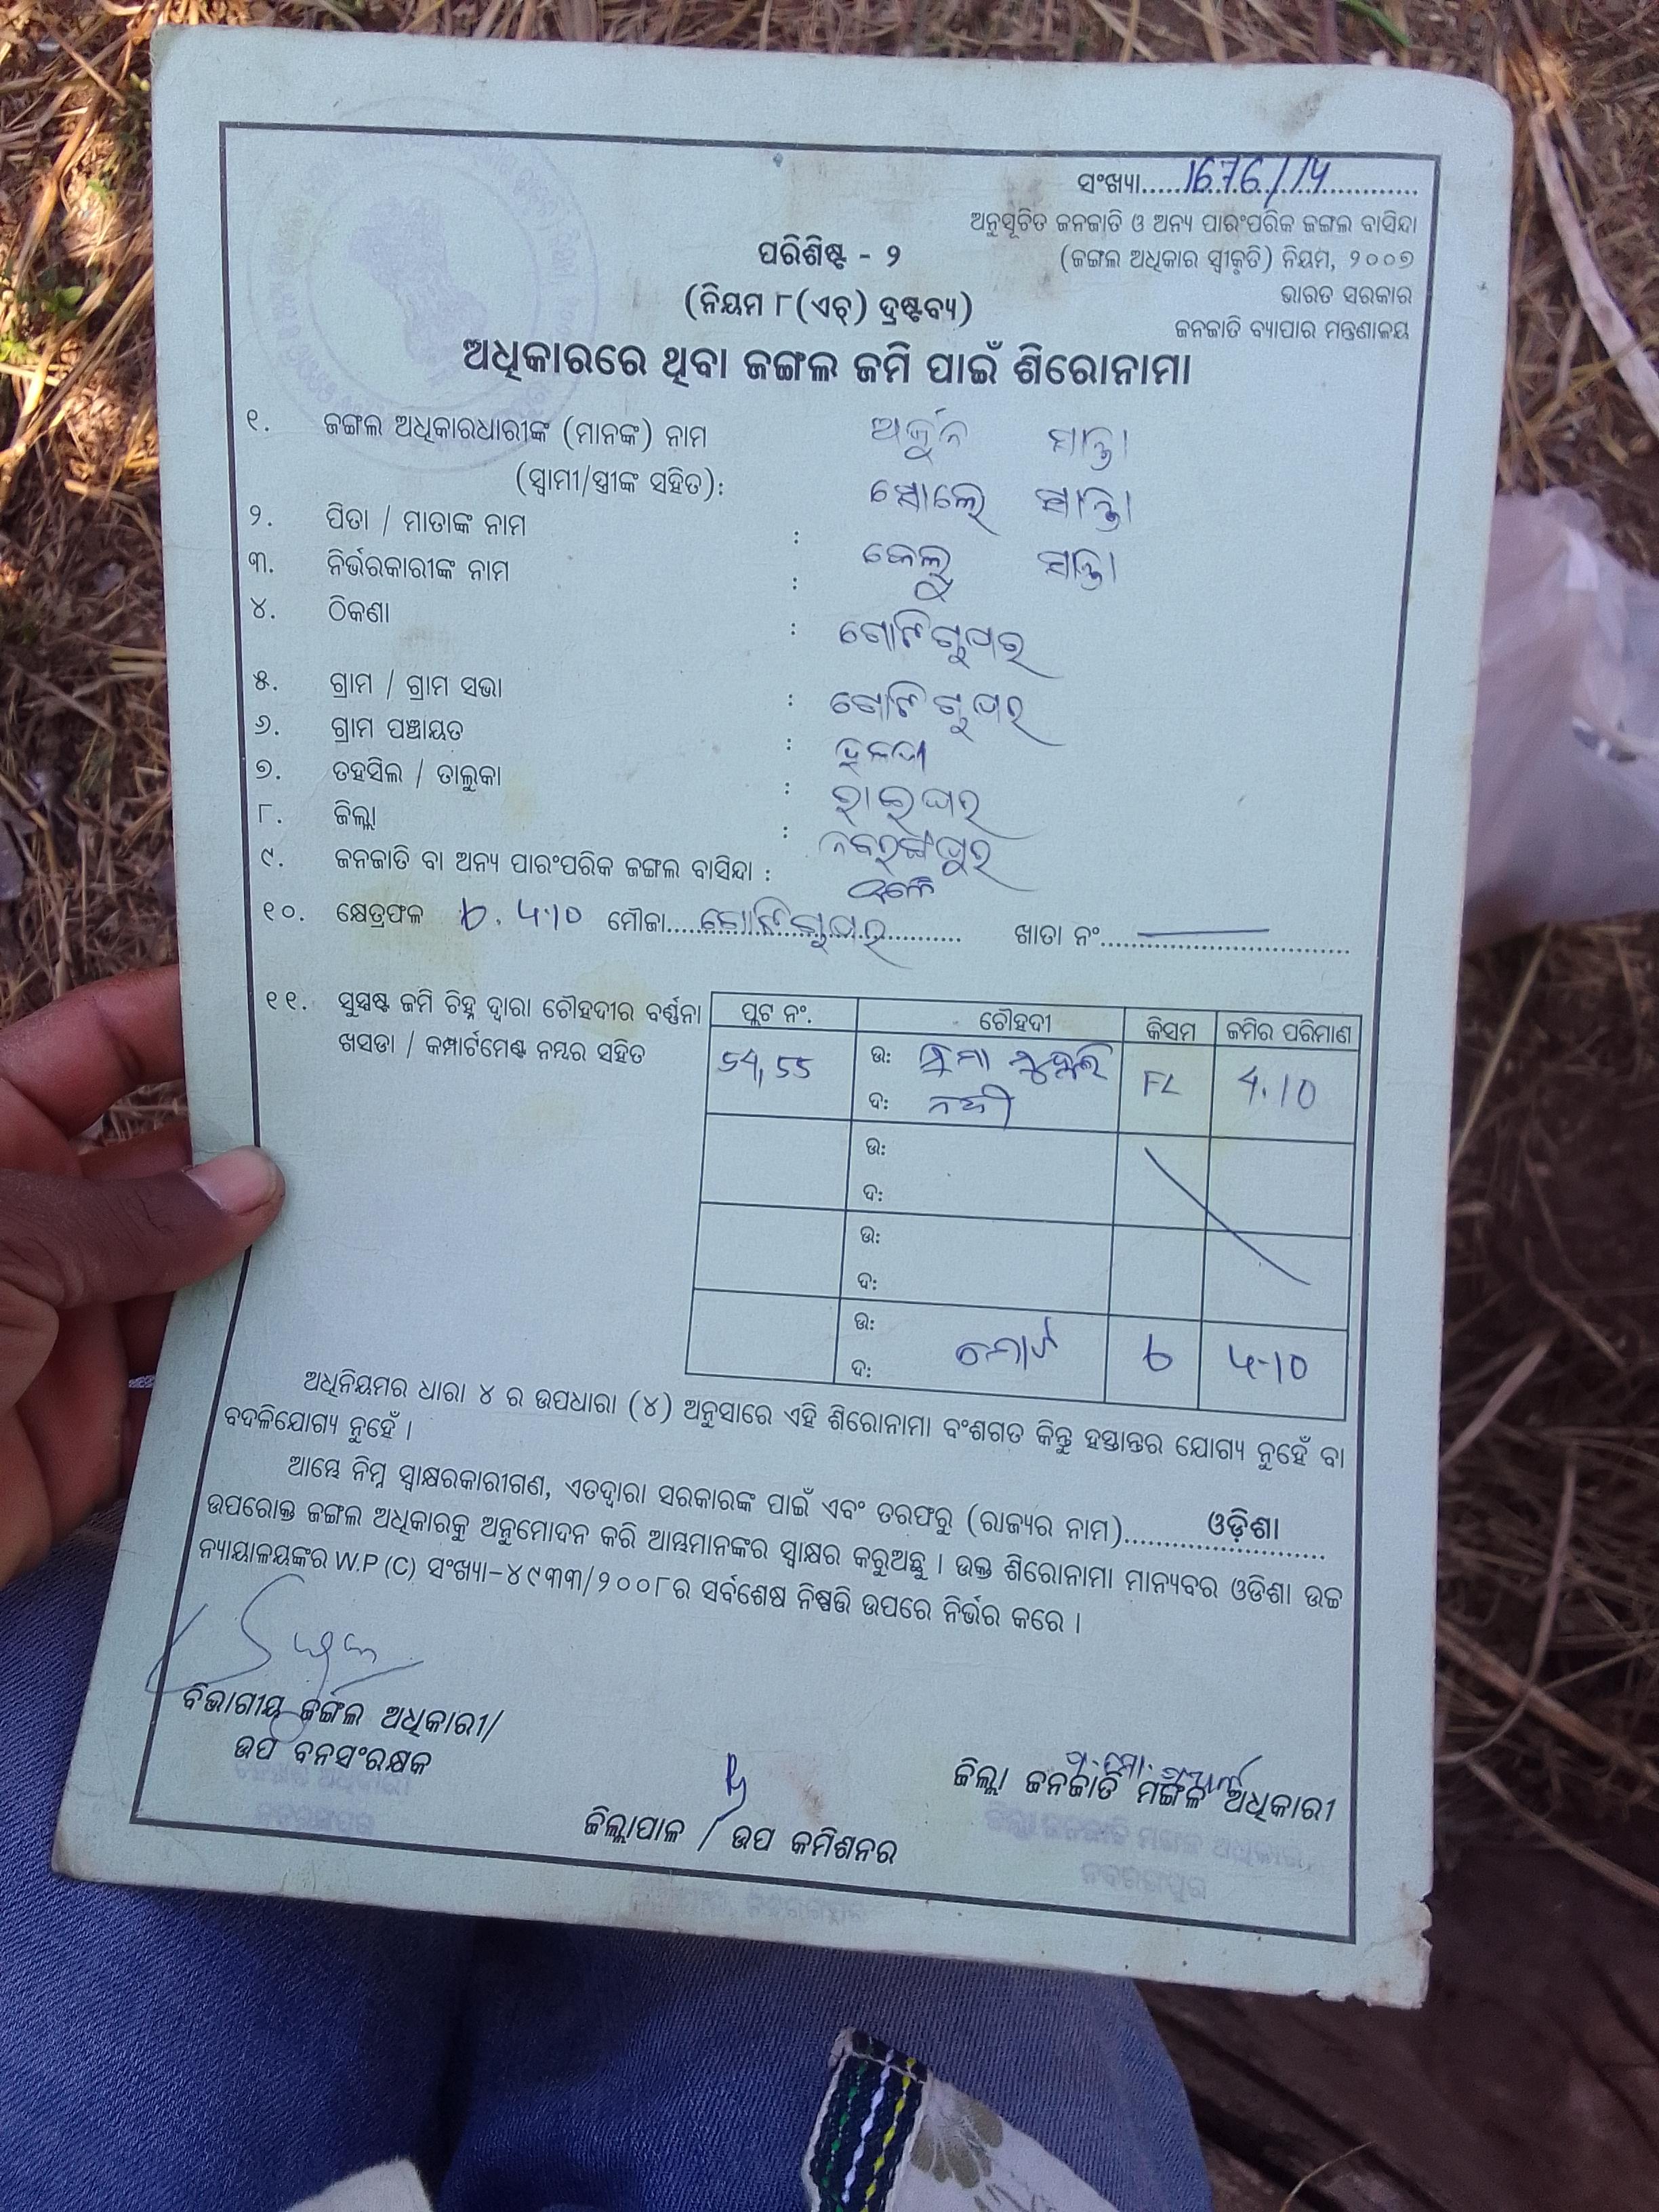 ସଂଖ୍ୟା..... 1676/14
ଅନୁସୂଚିତ ଜନଜାତି ଓ ଅନ୍ୟ ପାରଂପରିକ ଜଙ୍ଗଲ ବାସିନ୍ଦା
(ଜଙ୍ଗଲ ଅଧିକାର ସ୍ୱୀକୃତି) ନିୟମ, ୨୦୦୭
ଭାରତ ସରକାର
ଜନଜାତି ବ୍ୟାପାର ମନ୍ତ୍ରଣାଳୟ
ପରିଶିଷ୍ଟ - ୨
(ନିୟମ ୮(ଏଚ୍) ଦ୍ରଷ୍ଟବ୍ୟ)
ଅଧିକାରରେ ଥିବା ଜଙ୍ଗଲ ଜମି ପାଇଁ ଶିରୋନାମା
୧. ଜଙ୍ଗଲ ଅଧିକାରଧାରୀଙ୍କ (ମାନଙ୍କ) ନାମ ଅର୍ଜୁନ ସାନ୍ତା
(ସ୍ୱାମୀ/ସ୍ତ୍ରୀଙ୍କ ସହିତ): ସାନ୍ତା
୨. ପିତା / ମାତାଙ୍କ ନାମ : କେଲୁ ସାନ୍ତା
୩. ନିର୍ଭରକାରୀଙ୍କ ନାମ :
୪. ଠିକଣା :
୫. ଗ୍ରାମ / ଗ୍ରାମ ସଭା :
୬. ଗ୍ରାମ ପଞ୍ଚାୟତ :
୭. ତହସିଲ / ତାଲୁକା : ରାଇଘର
୮. ଜିଲ୍ଲା : ନବରଙ୍ଗପୁର
୯. ଜନଜାତି ବା ଅନ୍ୟ ପାରଂପରିକ ଜଙ୍ଗଲ ବାସିନ୍ଦା :
୧୦. କ୍ଷେତ୍ରଫଳ 4.10 ମୌଜା..... ଖାତା ନଂ.....
୧୧. ସୁସ୍ପଷ୍ଟ ଜମି ଚିହ୍ନ ଦ୍ୱାରା ଚୌହଦୀର ବର୍ଣ୍ଣନା
ଖସଡା / କମ୍ପାର୍ଟମେଣ୍ଟ ନମ୍ବର ସହିତ
ପ୍ଲଟ ନଂ. ଚୌହଦୀ କିସମ ଜମିର ପରିମାଣ
54, 55 ଉ: FL 4.10
ଦ: ନଦୀ
ଉ:
ଦ:
ଉ:
ଦ:
ଉ:
ଦ: 4-10
ଅଧିନିୟମର ଧାରା ୪ ର ଉପଧାରା (୪) ଅନୁସାରେ ଏହି ଶିରୋନାମା ବଂଶଗତ କିନ୍ତୁ ହସ୍ତାନ୍ତର ଯୋଗ୍ୟ ନୁହେଁ ବା
ବଦଳିଯୋଗ୍ୟ ନୁହେଁ ।
ଆମ୍ଭେ ନିମ୍ନ ସ୍ୱାକ୍ଷରକାରୀଗଣ, ଏତଦ୍ୱାରା ସରକାରଙ୍କ ପାଇଁ ଏବଂ ତରଫରୁ (ରାଜ୍ୟର ନାମ)..... ଓଡ଼ିଶା
ଉପରୋକ୍ତ ଜଙ୍ଗଲ ଅଧିକାରକୁ ଅନୁମୋଦନ କରି ଆମ୍ଭମାନଙ୍କର ସ୍ୱାକ୍ଷର କରୁଅଛୁ । ଉକ୍ତ ଶିରୋନାମା ମାନ୍ୟବର ଓଡିଶା ଉଚ୍ଚ
ନ୍ୟାୟାଳୟଙ୍କର W.P (C) ସଂଖ୍ୟା-୪୯୩୩/୨୦୦୮ର ସର୍ବଶେଷ ନିଷ୍ପତ୍ତି ଉପରେ ନିର୍ଭର କରେ ।
ବିଭାଗୀୟ ଜଙ୍ଗଲ ଅଧିକାରୀ/
ଉପ ବନସଂରକ୍ଷକ
ଜିଲ୍ଲାପାଳ / ଉପ କମିଶନର
ଜିଲ୍ଲା ଜନଜାତି ମଙ୍ଗଳ ଅଧିକାରୀ
ଜିଲ୍ଲା ଜନଜାତି ମଙ୍ଗଳ ଅଧିକାରୀ,
ନବରଙ୍ଗପୁର